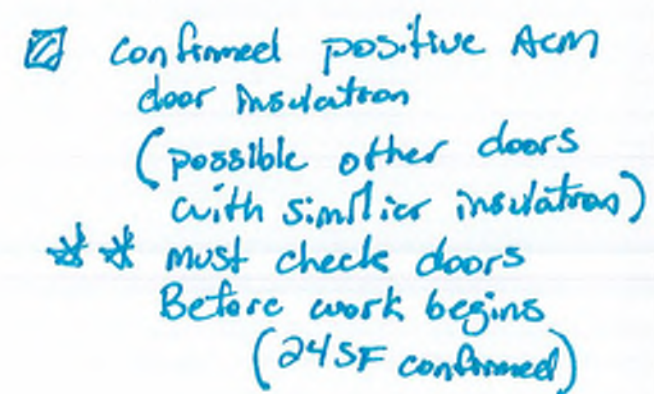 ☑ Confirmed positive ACM
door insulation
(possible other doors
with similier insulation)
** must check doors
Before work begins
(24SF confirmed)